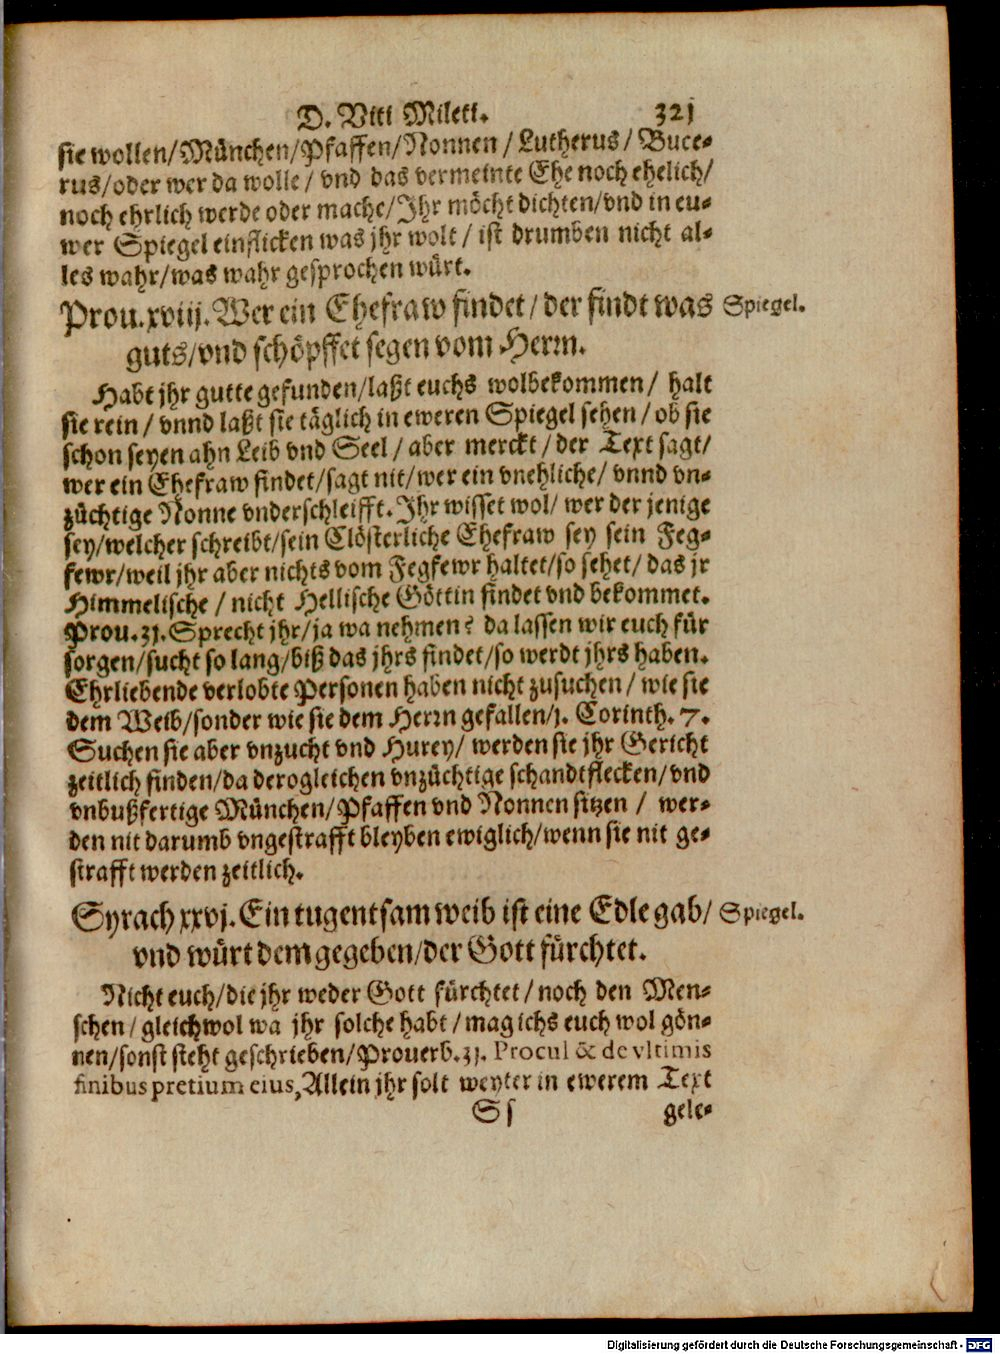 D. Viti Mileti. 321
sie wollen/München/Pfaffen/Nonnen/Lutherus/Buce-
rus/oder wer da wolle/vnd das vermeinte Ehe noch ehelich/
noch ehrlich werde oder mache/Jhr möcht dichten/vnd in eu-
wer Spiegel einflicken was jhr wolt/ist drumben nicht al-
les wahr/was wahr gesprochen würt.
Prou.xviij.Wer ein Ehefraw findet/der findt was Spiegel.
guts/vnd schöpffet segen vom Herrn.
Habt jhr gutte gefunden/laßt euchs wolbekommen/halt
sie rein/vnnd laßt sie täglich in eweren Spiegel sehen/ob sie
schon seyen ahn Leib vnd Seel/aber merckt/der Text sagt/
wer ein Ehefraw findet/sagt nit/wer ein vnehliche/vnnd vn-
züchtige Nonne vnderschleifft.Jhr wisset wol/wer der jenige
sey/welcher schreibt/sein Clösterliche Ehefraw sey sein Feg-
fewr/weil jhr aber nichts vom Fegfewr haltet/so sehet/das jr
Himmelische/nicht Hellische Göttin findet vnd bekommet.
Prou.31.Sprecht jhr/ja wa nehmen? da lassen wir euch für
sorgen/sucht so lang/biß das jhrs findet/so werdt jhrs haben.
Ehrliebende verlobte Personen haben nicht zusuchen/wie sie
dem Weib/sonder wie sie dem Herrn gefallen/1. Corinth. 7.
Suchen sie aber vnzucht vnd Hurey/werden sie jhr Gericht
zeitlich finden/da derogleichen vnzüchtige schandtflecken/vnd
vnbußfertige München/Pfaffen vnd Nonnen sitzen/wer-
den nit darumb vngestrafft bleyben ewiglich/wenn sie nit ge-
strafft werden zeitlich.
Syrach xxvj.Ein tugentsam weib ist eine Edle gab/ Spiegel.
vnd würt dem gegeben/der Gott fürchtet.
Nicht euch/die jhr weder Gott fürchtet/noch den Men-
schen/gleichwol wa jhr solche habt/mag ichs euch wol gön-
nen/sonst steht geschrieben/Prouerb.31. Procul & de vltimis
finibus pretium eius,Allein jhr solt weyter in ewerem Text
Ss gele-
Digitalisierung gefördert durch die Deutsche Forschungsgemeinschaft - DFG